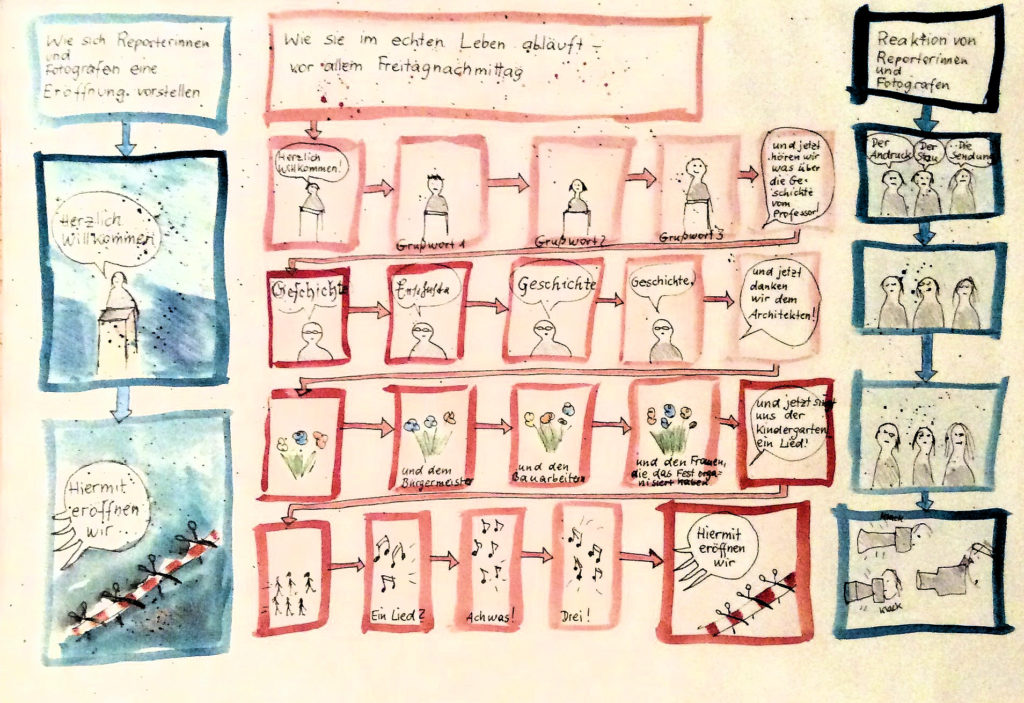 Wie sich Reporterinnen
und
Fotografen eine
Eröffnung vorstellen
Herzlich
Willkommen
Hiermit
eröffnen
wir...
Wie sie im echten Leben abläuft -
vor allem Freitagnachmittag
Herzlich
Willkommen!
Grußwort 1
Grußwort 2
Grußwort 3
und jetzt
hören wir
was über
die Ge-
schichte
vom
Professor!
Geschichte
Geschichte
Geschichte,
und jetzt
danken
wir dem
Architekten!
und dem
Bürgermeister
und den
Bauarbeitern
und den Frauen,
die das Fest orga-
nisiert haben
und jetzt singt
uns der
Kindergarten
ein Lied!
Ein Lied?
Achwas!
Drei!
Hiermit
eröffnen
wir
Reaktion von
Reporterinnen
und
Fotografen
Der
Andruck
Der
Stau
Die
Sendung
Klack
Klack